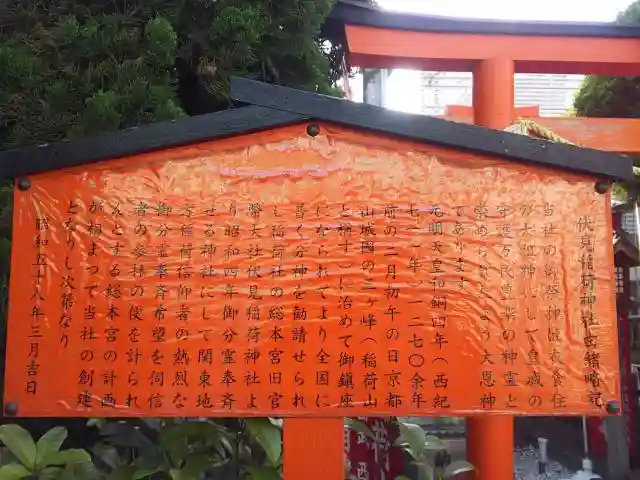 伏見稲荷神社由緒略記
当社の御祭神は衣食住
の大祖神にして皇城の
守護万民豊楽の神霊と
崇められたまう大恩神
であります
元明天皇和銅四年（西紀
七一一年）一二七〇余年
前の二月初午の日京都
山城國の三ヶ峰（稲荷山
と称す）に治めて御鎮座
になられてより全国に
普く分神を勧請せられ
し稲荷社の総本宮旧官
幣大社伏見稲荷神社よ
り昭和四年御分霊奉斉
せる神社にして関東地
方稲荷信仰者の熱烈な
御分霊奉斉希望を伺信
者の参拝の便を計られ
んとする総本宮の計画
が相まつて当社の創建
となりし次第なり
昭和五十八年三月吉日